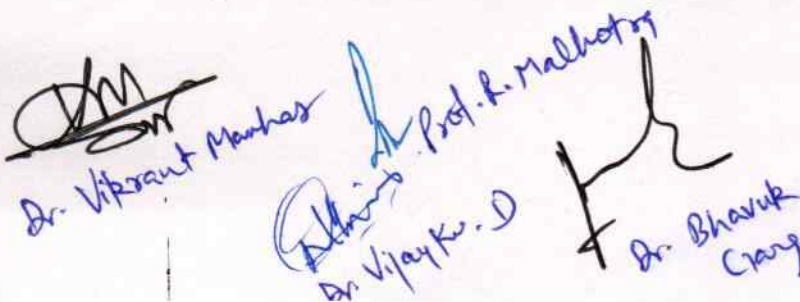 Dr. Vikrant Manhas
Prof. R. Malhotra
Dr. Vijay Kr. D
Dr. Bhavuk
Garg